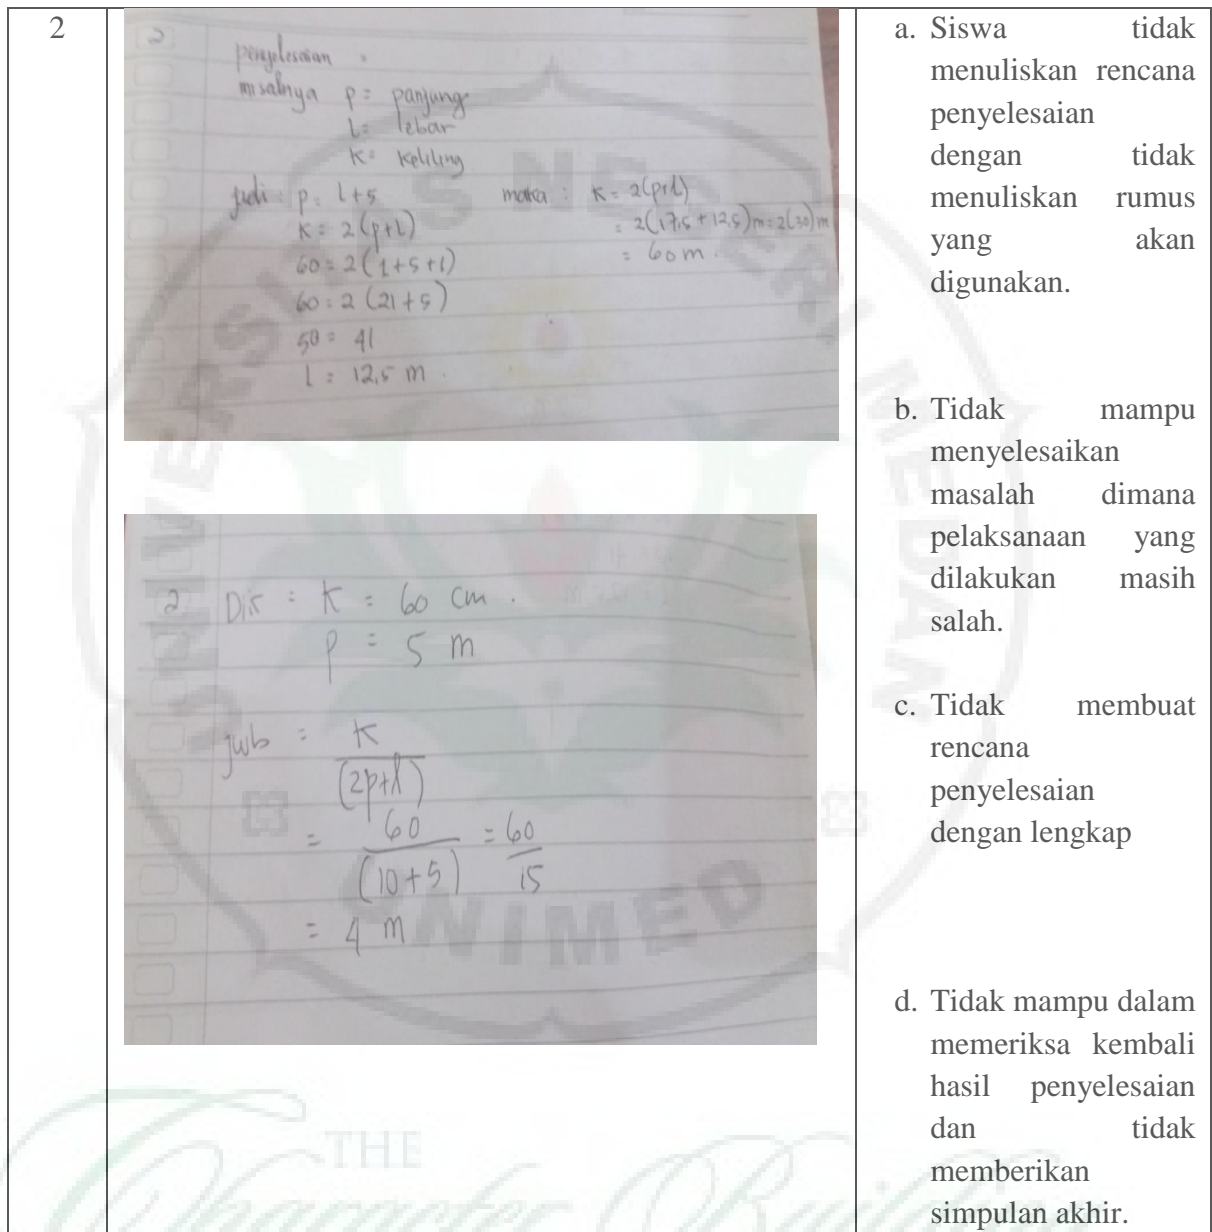 2
2
penyelesaian =
misalnya p = panjang
l = lebar
K = Keliling
jadi : p = l+5
K = 2(p+l)
60 = 2(l+5+l)
60 = 2(2l+5)
50 = 4l
l = 12,5 m.
maka : K = 2(p+l)
= 2(17,5 + 12,5)m = 2(30)m
= 60 m.
2 Dik : K = 60 cm.
p = 5 m
jwb = K
(2p+l)
= 60 = 60
(10+5) 15
= 4 m
a. Siswa tidak
menuliskan rencana
penyelesaian
dengan tidak
menuliskan rumus
yang akan
digunakan.
b. Tidak mampu
menyelesaikan
masalah dimana
pelaksanaan yang
dilakukan masih
salah.
c. Tidak membuat
rencana
penyelesaian
dengan lengkap
d. Tidak mampu dalam
memeriksa kembali
hasil penyelesaian
dan tidak
memberikan
simpulan akhir.
UNIVERSITAS NEGERI MEDAN
UNIMED
THE
Character Building